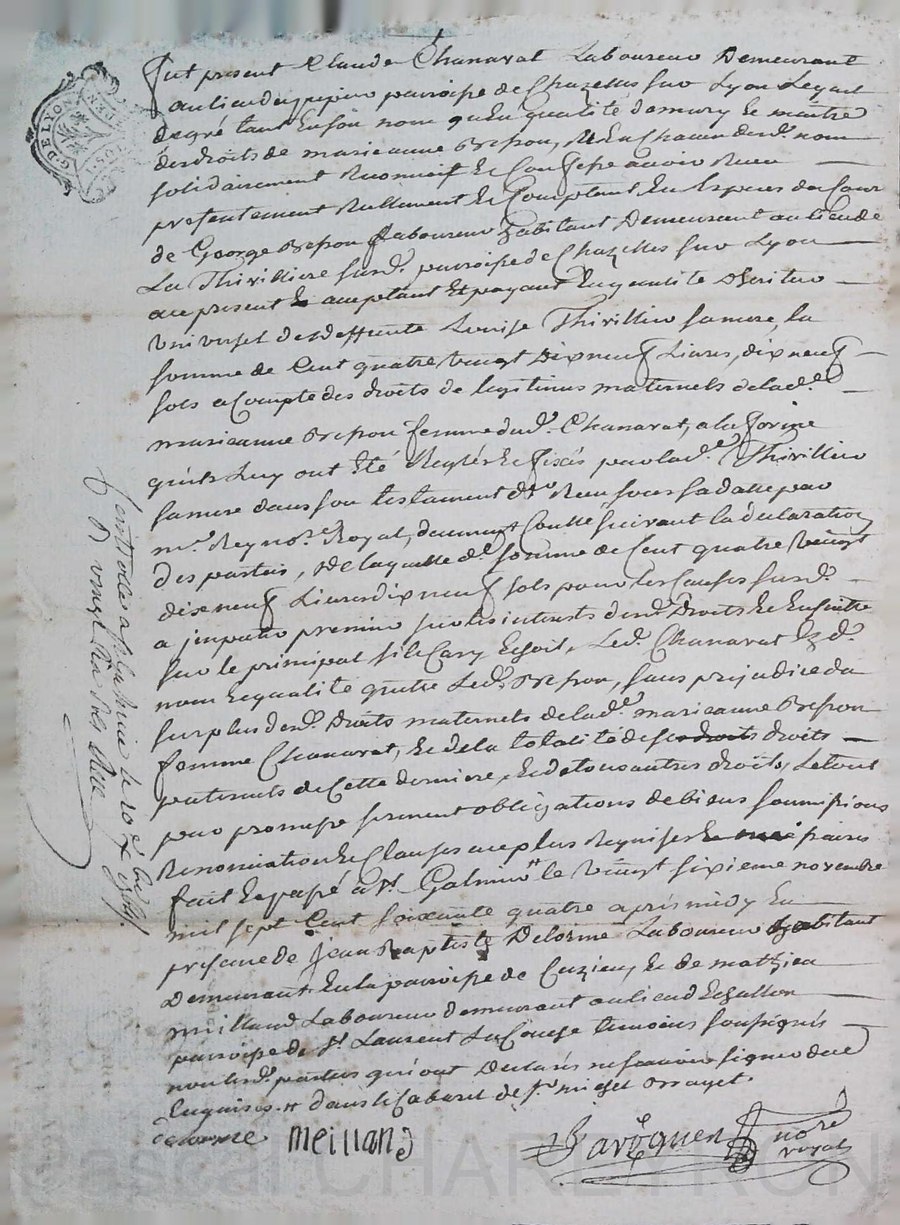 G. DE LYON
Fut présent Claude Chanavat Laboureur Demeurant
paroisse de Chazelles sur Lyon Lequel
de gré tant En son nom qu'En qualité de mary Et maitre
des droits de marieanne Bresson, Et En Chacun desd. noms
solidairement Reconnoit Et Confesse avoir Receu
presentement Reellement Et Comptant En Especes du Cour
de George Bresson Laboureur habitant Demeurant au lieu de
La Thivilliere susd. paroisse de Chazelles sur Lyon
acy present Et acceptant Et payant En qualité d'heritier
universel de deffunte Louise Thivillier sa mere, la
somme de Cent quatre vingt Dix neuf Livres, dix neuf
sols a Compte des droits de legitimes maternels de lad.e
marieanne Bresson femme dud. Chanavat, a la forme
qu'ils Luy ont Eté Reglés Et fixés par lad.e Thivillier
sa mere dans son testament Receu sous sa datte par
m.e Rey no.re Royal, duement Conllé suivant la declaration
des parties, De laquelle d.e somme de Cent quatre vingt
dix neuf Livres dix neuf sols pour les Causes susd.
a imputer premier sur les interests desd. Droits Et Ensuitte
sur le principal si le Cas y Echoit, Led. Chanavat Ezd.
nom Et qualité quitte Led. Bresson, sans prejudice du
surplus desd. Droits maternels de lad.e marieanne Bresson
femme Chanavat, Et de la totalité de ses droits
paternels de Cette derniere, Et de tous autres droits, Le tout
par promesse serment obligations de biens soumissions
Renonciation Et Clauses au plus Requises Et
fait Et passé a S.t Galmier le vingt sixieme novembre
mil sept Cent soixante quatre apres midy En
presence de Jean Baptiste Delorme Laboureur habitant
Demeurant En la paroisse de Cuzieu, Et de mathieu
meilland Laboureur demeurant au lieu
paroisse de S.t Laurent La Conche temoins soussignés
non lesd. parties qui ont Declaré ne scavoir signer de ce
Enquises dans le Cabaret de S.r michel
delorme meilland
Javoguen nore
royal
Controllé a S.t Galmier le
Pascal CHAREYRON